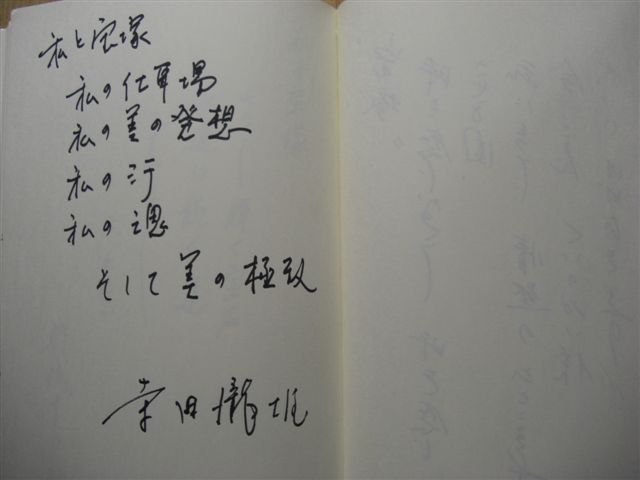 私と宝塚
私の仕事場
私の美の発想
私の汗
私の魂
そして美の極致
寺田瀧雄